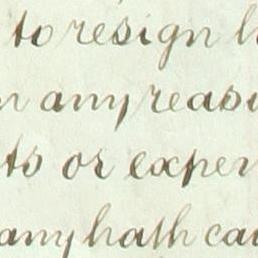 to resign h
n any reaso
ts or exper
any hath cau